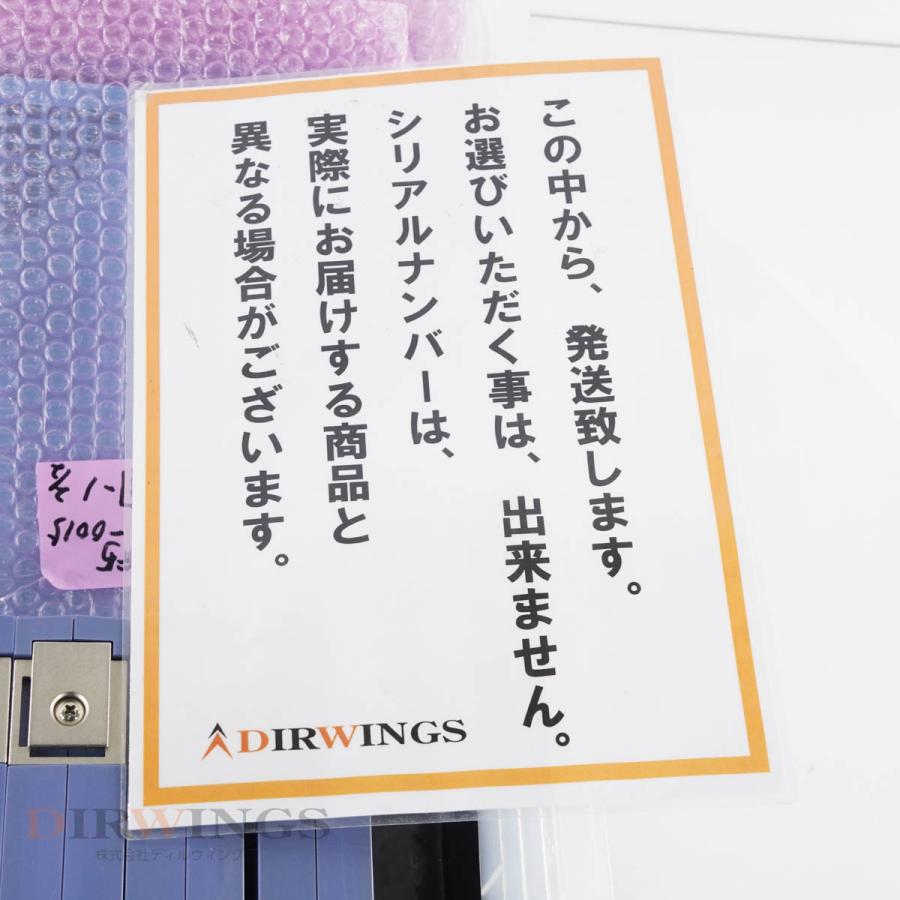 この中から、発送致します。
お選びいただく事は、出来ません。
シリアルナンバーは、
実際にお届けする商品と
異なる場合がございます。
DIRWINGS
-0015
DIRWINGS
株式会社ディルウィングス